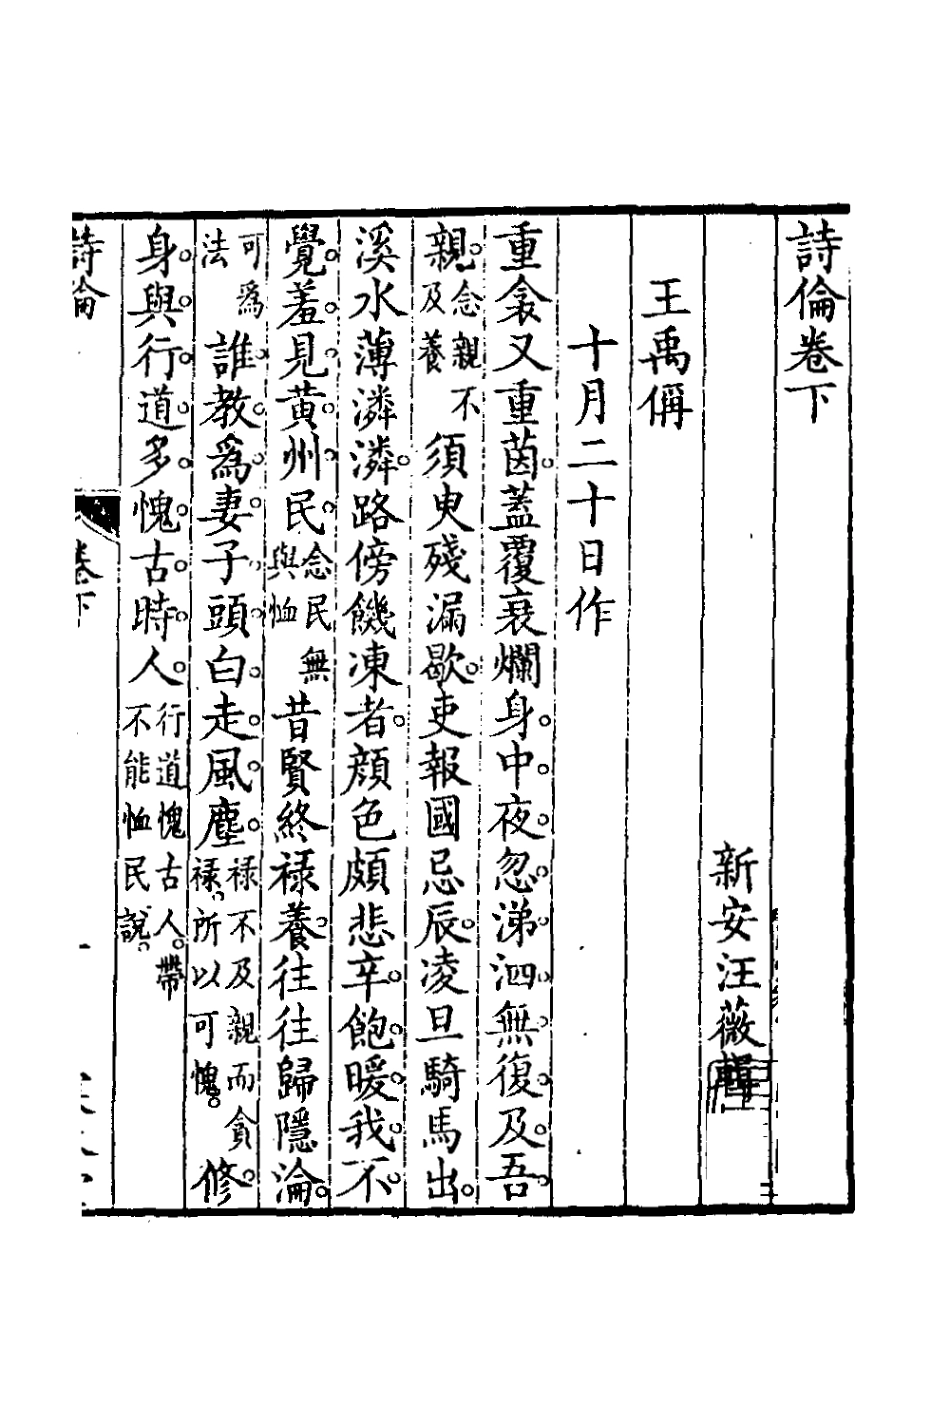 詩倫卷下
新安汪薇輯
王禹偁
十月二十日作
重衾又重茵。蓋覆衰爛身。中夜忽涕泗無復及吾
親。念親不及養須臾殘漏歇。吏報國忌辰。凌旦騎馬出。
溪水薄潾潾。路傍饑凍者。顏色頗悲辛。飽暖我不
覺羞見黃州民。念民無與恤昔賢終祿養。往往歸隱淪。
可為法誰教為妻子頭白走風塵。祿不及親而貪祿、所以可愧。修
身與行道多愧古時人。行道愧古人。帶不能恤民說。
詩倫
卷下
一